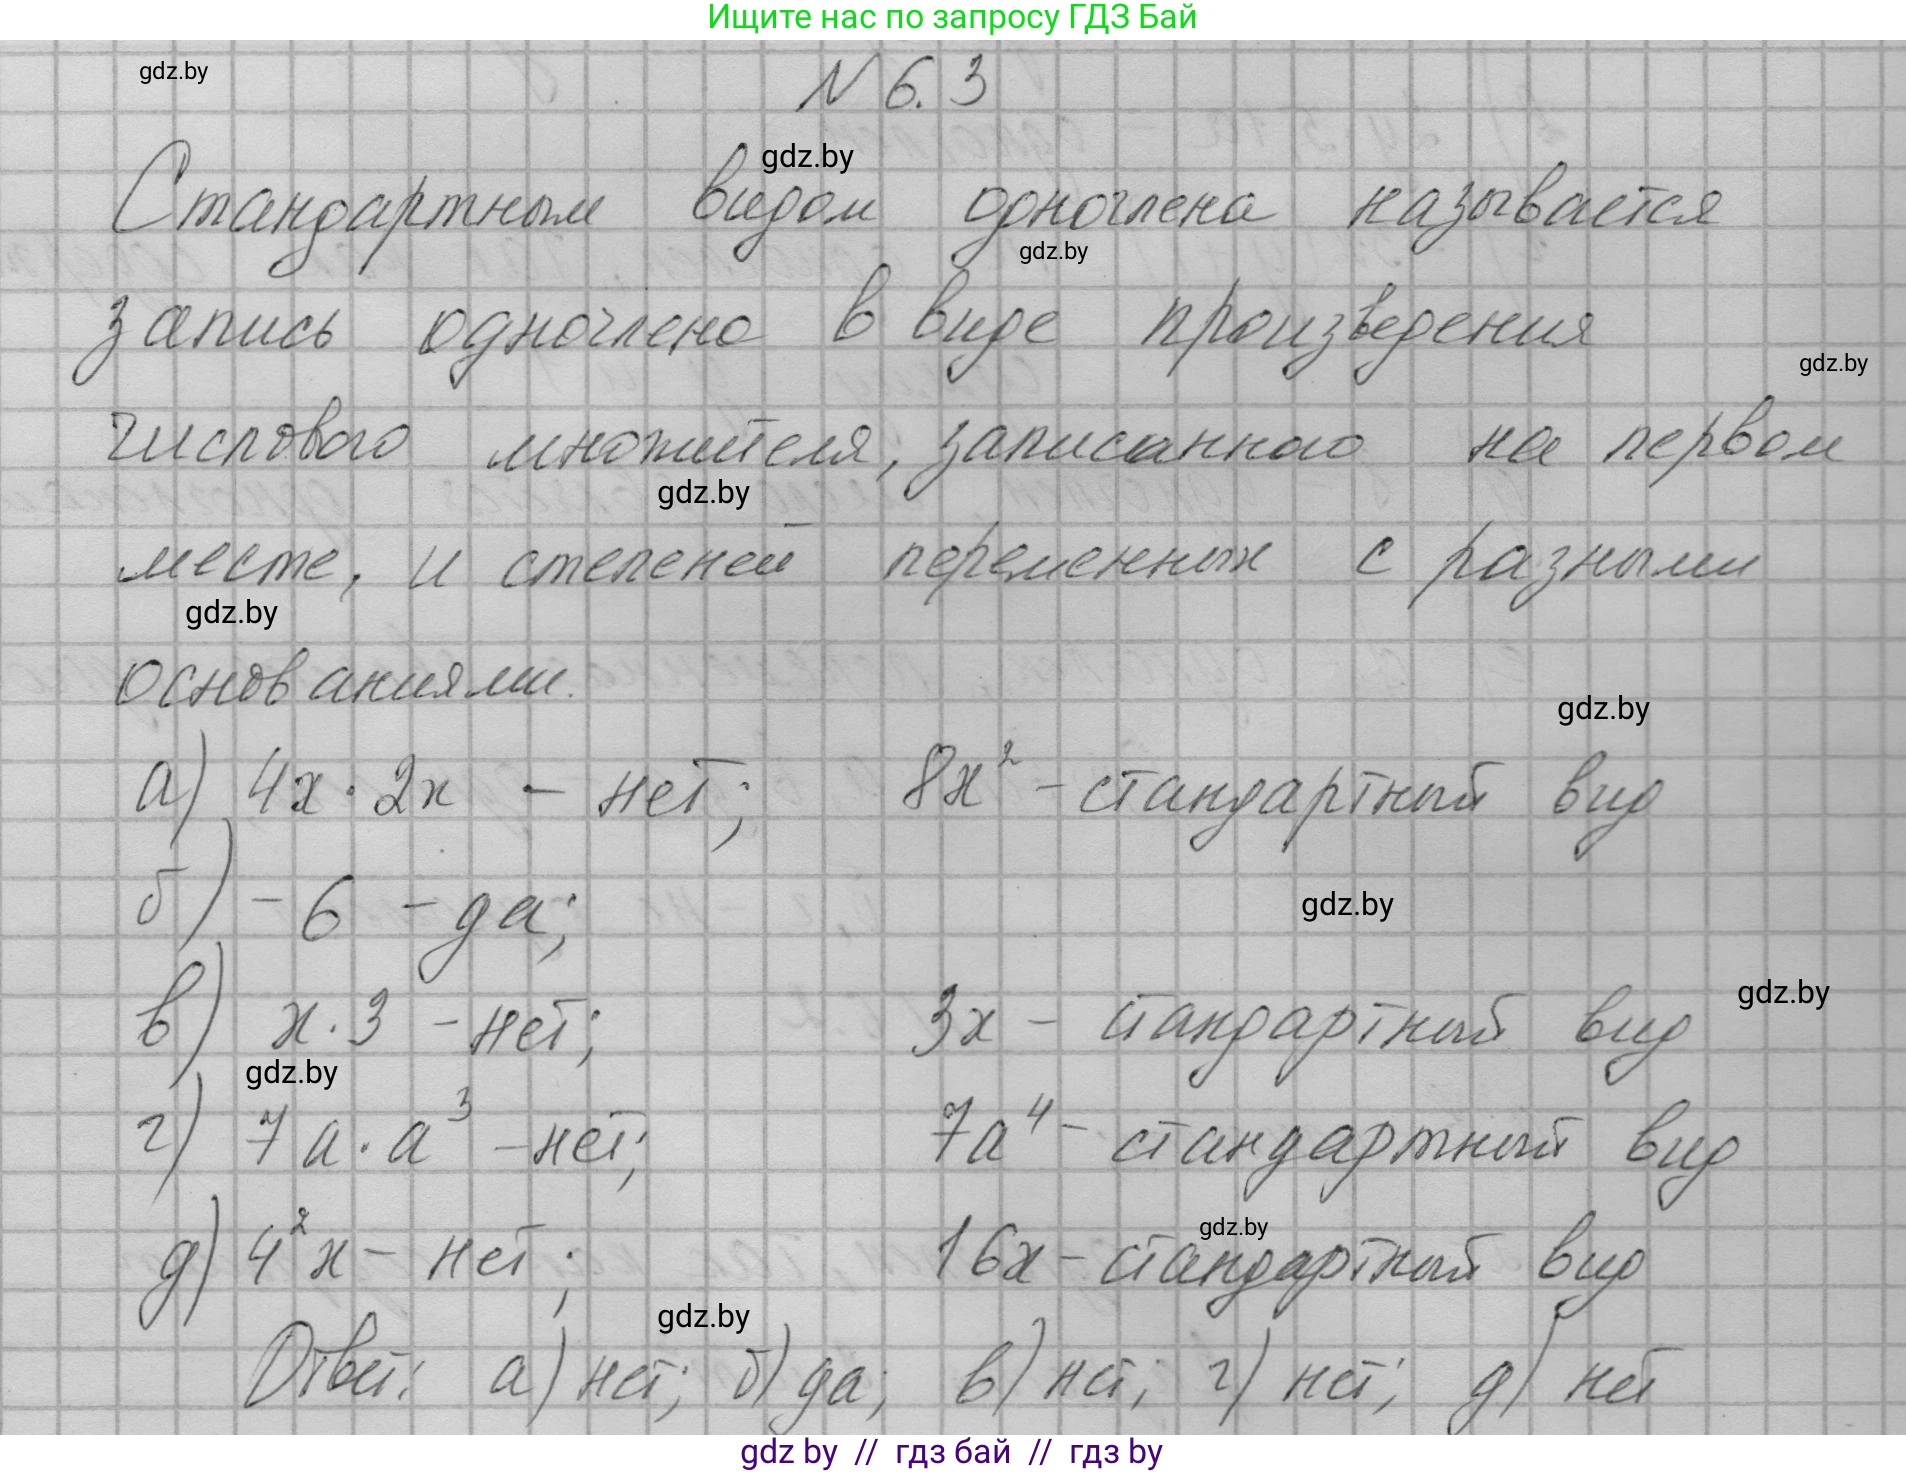 Ищите нас по запросу ГДЗ Бай
gdz.by
N 6.3
gdz.by
Стандартным видом одночлена называется
gdz.by
запись одночлена в виде произведения
gdz.by
числового множителя, записанного на первом
gdz.by
месте, и степеней переменных с разными
gdz.by
основаниями.
gdz.by
а) 4х · 2х - нет; 8х² - стандартный вид
б) -6 - да;
gdz.by
gdz.by
в) х · 3 - нет; 3х - стандартный вид
gdz.by
г) 7а · а³ - нет; 7а⁴ - стандартный вид
gdz.by
д) 4²х - нет; 16х - стандартный вид
gdz.by
Ответ: а) нет; б) да; в) нет; г) нет; д) нет
gdz by // гдз бай // гдз by